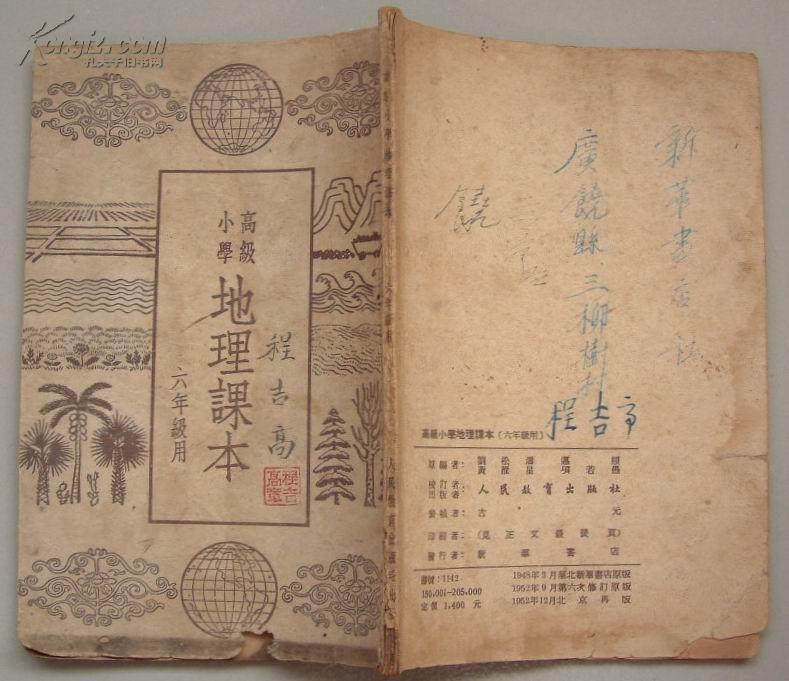 Kongfz.com
孔夫子旧书网
高級
小學
地理課本
六年級用
程吉高
程吉
高章
新華書店
廣饒縣三柳樹村
程吉高
饒
高級小學地理課本(六年級用)
原編者:
校訂者
出版者:人民教育出版社
裝幀者:古 元
印刷者:(見正文最後頁)
發行者:新華書店
書號:1142
180,001—205,000
定價 1,400 元
1948年3月華北新華書店原版
1952年9月第六次修訂原版
1952年12月北京再版